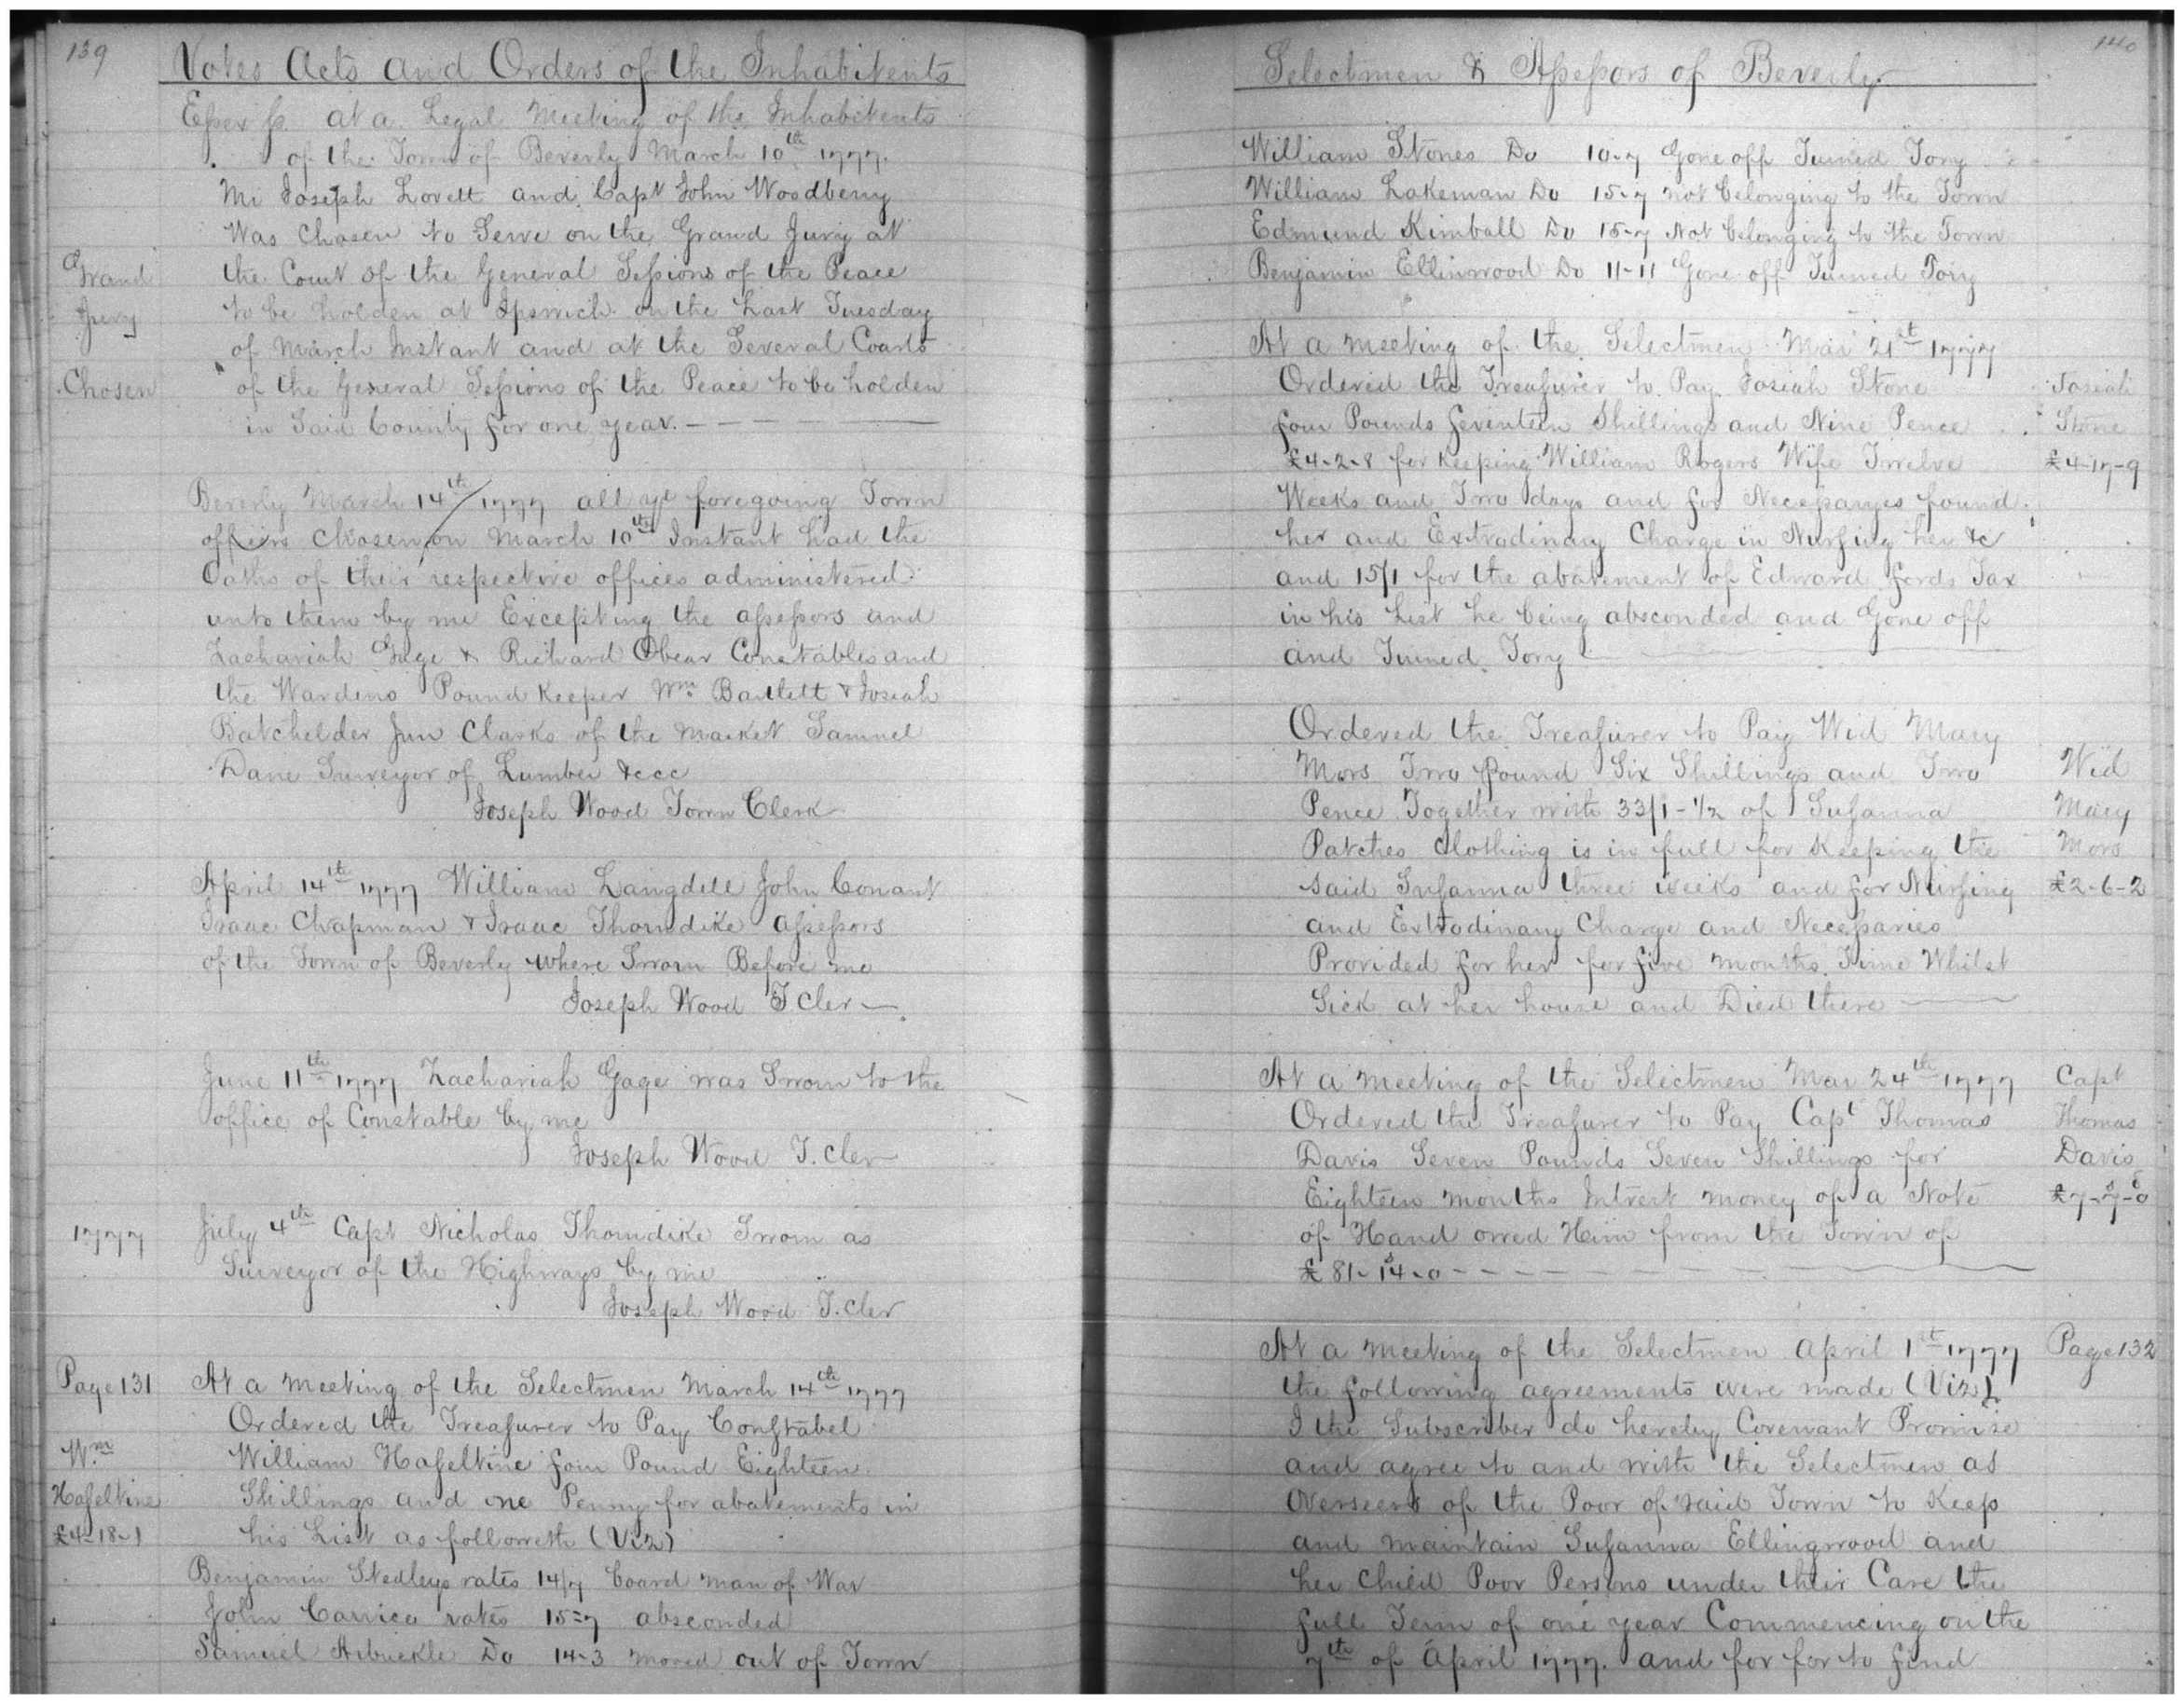 139
Votes Acts and Orders of the Inhabitents
Essex ss. at a Legal Meeting of the Inhabitents
of the Town of Beverly March 10th 1777.
Mr Joseph Lovett and Capt John Woodberry
Was Chosen to Serve on the Grand Jury at
Grand
the Court of the General Sessions of the Peace
Jury
to be holden at Ipswich on the Last Tuesday
of March Instant and at the Several Courts
Chosen
of the General Sessions of the Peace to be holden
in Said County for one year.
Beverly March 14th 1777 all ye foregoing Town
officers Chosen on March 10th Instant had the
Oaths of their respective offices administered
unto them by me Excepting the assessors and
Zachariah Gage & Richard Obear Constables and
the Wardens Pound Keeper Wm Bartlett & Josiah
Batchelder Jun Clarks of the Market Samuel
Dane Surveyor of Lumber &cc
Joseph Wood Town Clerk
April 14th 1777 William Langdell John Conant
Isaac Chapman & Isaac Thorndike assessors
of the Town of Beverly where Sworn Before me
Joseph Wood T Cler
June 11th 1777 Zachariah Gage was Sworn to the
office of Constable by me
Joseph Wood T. Cler
1777
July 4th Capt Nicholas Thorndike Sworn as
Surveyor of the Highways by me
Joseph Wood T. Cler
Page 131
At a Meeting of the Selectmen March 14th 1777
Ordered the Treasurer to Pay Constabel
Wm
William Haseltine four Pound Eighteen
Haseltine
Shillings and one Penny for abatements in
£4-18-1
his List as followeth (Viz)
Benjamin Stedleys rates 14/7 board man of War
John Carrico rates 15=7 absconded
Samuel Arbuckle Do 14-3 moved out of Town
140
Selectmen & Assessors of Beverly
William Stones Do 10-7 Gone off Turned Tory
William Lakeman Do 15-7 not belonging to the Town
Edmund Kimball Do 15-7 Not belonging to the Town
Benjamin Ellinwood Do 11-11 Gone off Turned Tory
At a meeting of the Selectmen Mar 21st 1777
Ordered the Treasurer to Pay Josiah Stone
Josiah
four Pounds seventeen Shillings and Nine Pence
Stone
£4-2-8 for keeping William Rogers Wife Twelve
£4-17-9
Weeks and Two days and for Necessaryes found
her and Extrodinary Charge in Nursing her &c
and 15/1 for the abatement of Edward fords Tax
in his List he being absconded and Gone off
and Turned Tory
Ordered the Treasurer to Pay Wid Mary
Mors Two Pound Six Shillings and Two
Wid
Pence Together with 33/1-1/2 of Susanna
Mary
Patches Clothing is in full for Keeping the
Mors
said Susanna three weeks and for Nursing
£2-6-2
and Extrodinary Charge and Necessaries
Provided for her for five months Time Whilst
Sick at her house and Died there
At a meeting of the Selectmen Mar 24th 1777
Capt
Ordered the Treasurer to Pay Capt Thomas
Thomas
Davis Seven Pounds Seven Shillings for
Davis
Eighteen months Intrest money of a Note
£7-7-0
of Hand owed Him from the Town of
£81-14-0
At a meeting of the Selectmen April 1st 1777
Page 132
the following agreements were made (Viz)
I the Subscriber do hereby Covenant Promise
and agree to and with the Selectmen as
Overseers of the Poor of said Town to Keep
and maintain Susanna Ellingwood and
her Child Poor Persons under their Care the
full Term of one year Commencing on the
7th of April 1777. and for for to find